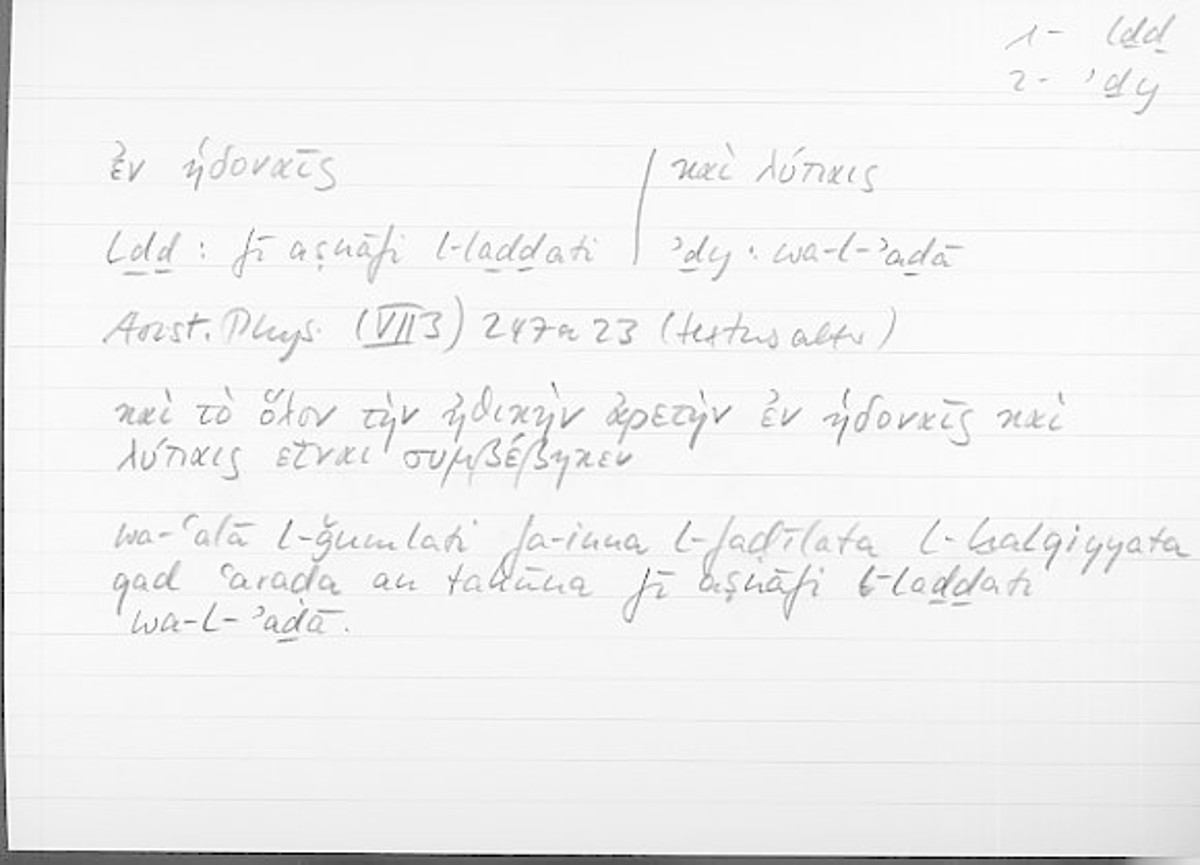 1- lḏḏ
2- ʾḏy
ἐν ἡδοναῖς | καὶ λύπαις
lḏḏ : fī aṣnāfi l-laḏḏati | ʾḏy : wa-l-ʾaḏā
Arist. Phys. (VII 3) 247a 23 (textus alter)
καὶ τὸ ὅλον τὴν ἠθικὴν ἀρετὴν ἐν ἡδοναῖς καὶ
λύπαις εἶναι συμβέβηκεν
wa-ʿalā l-ǧumlati fa-inna l-faḍīlata l-ḫalqiyyata
qad ʿaraḍa an takūna fī aṣnāfi l-laḏḏati
wa-l-ʾaḏā.